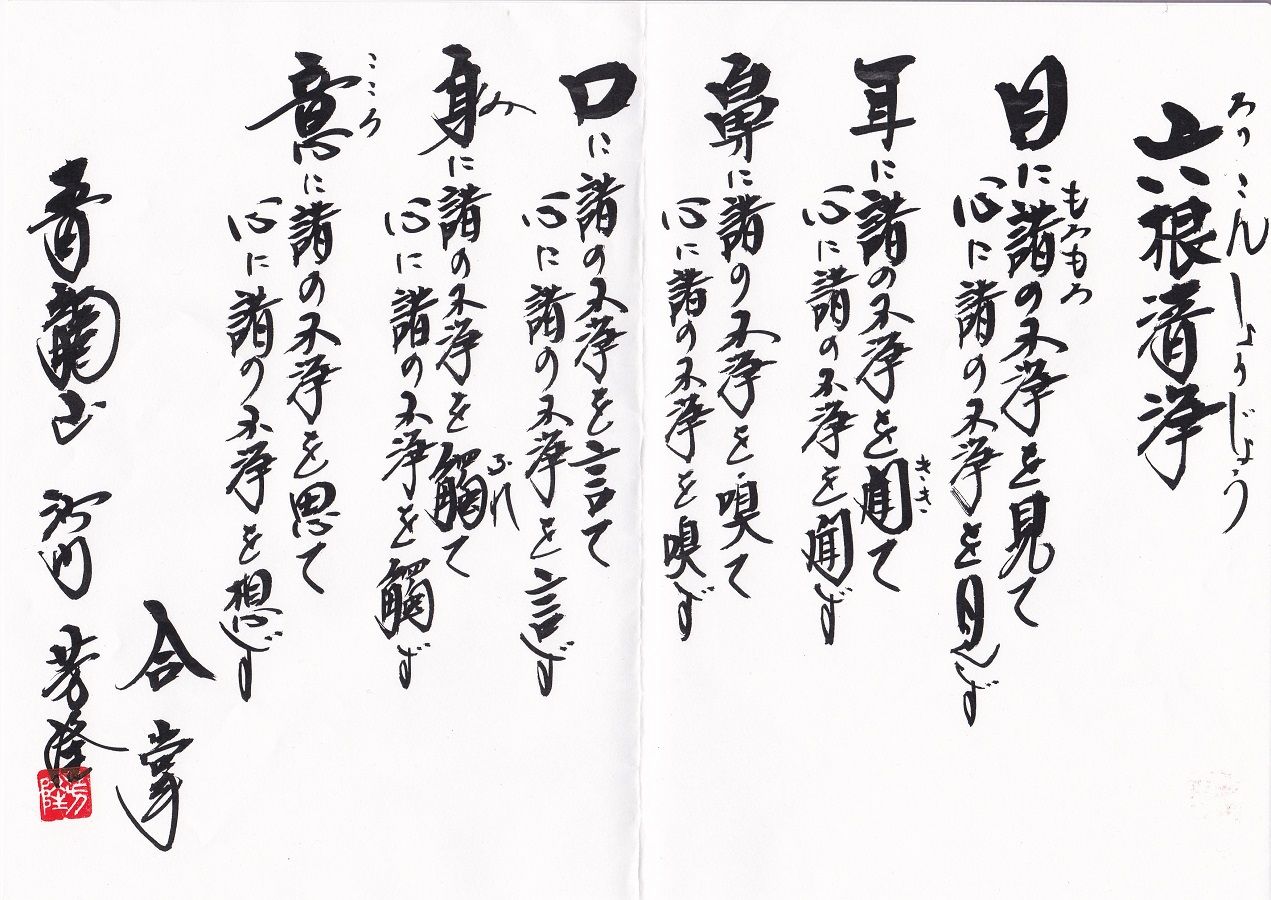 六根清浄
ろっこんしょうじょう
目に諸の不浄を見て
もろもろ
心に諸の不浄を見ず
耳に諸の不浄を聞て
きき
心に諸の不浄を聞ず
鼻に諸の不浄を嗅て
心に諸の不浄を嗅ず
口に諸の不浄を言て
心に諸の不浄を言ず
身に諸の不浄を觸て
み
ふれ
心に諸の不浄を觸ず
意に諸の不浄を思て
こころ
心に諸の不浄を想ず
合掌
青龍山
芳隆